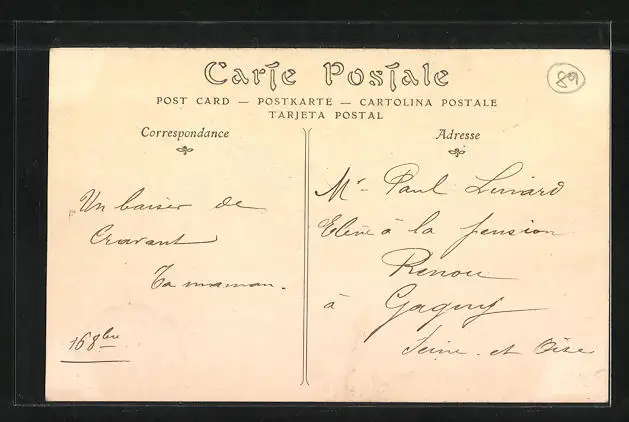 Carte Postale
89
POST CARD — POSTKARTE — CARTOLINA POSTALE
TARJETA POSTAL
Correspondance
Un baiser de
Cravant
Ta maman.
16 8bre
Adresse
Mr Paul
Elève à la pension
Renou
à Gagny
Seine et Oise